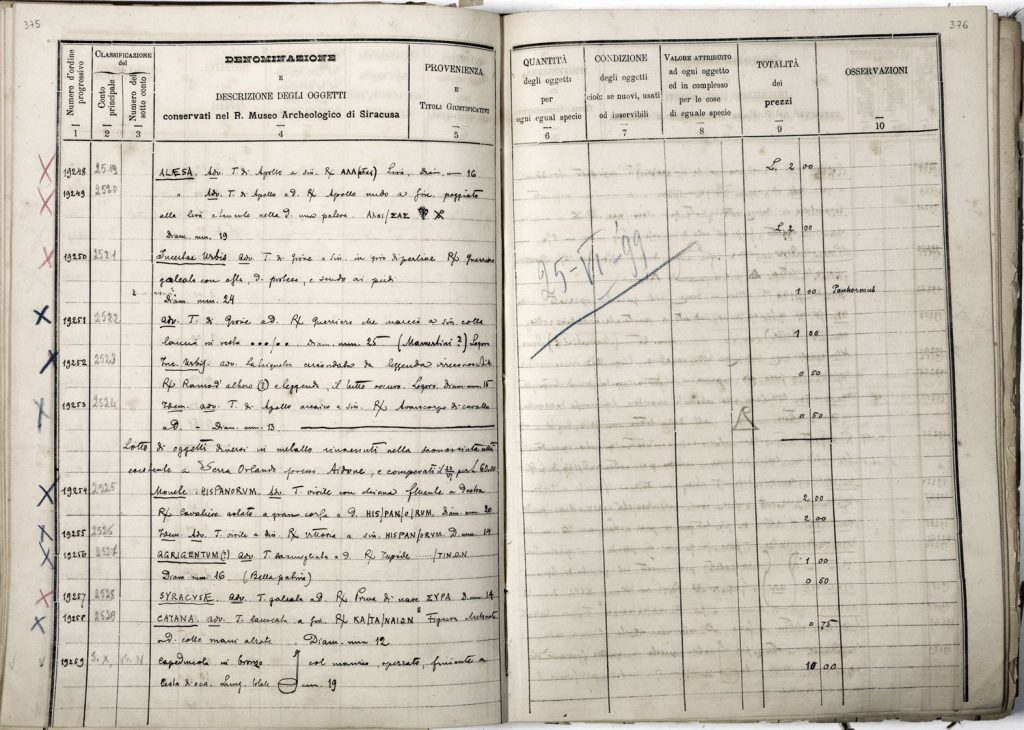 375
376
Numero d'ordine progressivo
CLASSIFICAZIONE
del
Conto principale
Numero del sotto conto
DENOMINAZIONE
E
DESCRIZIONE DEGLI OGGETTI
conservati nel R. Museo Archeologico di Siracusa
PROVENIENZA
E
TITOLI GIUSTIFICATIVI
QUANTITÀ
degli oggetti
per
ogni egual specie
CONDIZIONE
degli oggetti
cioè: se nuovi, usati
od inservibili
VALORE ATTRIBUITO
ad ogni oggetto
ed in complesso
per le cose
di eguale specie
TOTALITÀ
dei
prezzi
OSSERVAZIONI
1 2 3 4 5 6 7 8 9 10
19248 2519 ALÆSA. Adv. T. di Apollo a sin. Rx Lira, Diam. mm 16 L. 2 00
19249 2520 " Adv. T. di Apollo a d. Rx Apollo nudo a poggiato
alla lira e nella d. una
Diam. mm. 19 L. 2 00
19250 2521 Incertae Urbis adv. T. di Giove a sin. in giro di perline Rx Guerriero
galeato con asta, d. protesa, e scudo ai piedi
Diam mm. 24 1 00 Panhormus
25-VI-99
19251 2522 adv. T. di Giove a d. Rx Guerriero che marcia a sin. colla
lancia in resta Diam. mm. 25 (Mamertini?) Logoro 1 00
19252 2523 Inc. Urbis. adv. La triquetra circondata da leggenda irriconoscibile
Rx Ramo d'albero (?) e leggenda, il tutto oscuro. Logoro. Diam. mm. 15 0 50
19253 2524 Idem. adv. T. di Apollo a sin. Rx Avancorpo di cavallo
a d. - Diam. mm. 13. 0 50
Lotto di oggetti diversi in metallo rinvenuti nella sconosciuta città
a Serra Orlando presso Aidone, e comperati
19254 2525 Monete HISPANORUM. Adv. T. virile con a destra
Rx Cavaliere astato a gran corsa a d. HIS/PAN/O/RUM. Diam mm 20 2 00
19255 2526 Idem. Adv. T. virile a sin. Rx Vittoria a sin. HISPAN/ORUM. D mm 14 2 00
19256 2527 AGRIGENTUM (?) adv. T. a d. Rx /ΤΙΝΩΝ
Diam. mm 16 (Bella patina) 1 00
19257 2528 SYRACVSE. adv. T. galeata a d. Rx Prora di nave ΣΥΡΑ. D. mm 14 0 50
19258 2529 CATANA. adv. T. laureata a Rx ΚΑ/ΤΑ/ΝΑΙΩΝ Figura
a d. colle mani alzate. Diam. mm 12 0 75
19259 Capeduncola in bronzo col manico, finiente a
testa d'oca. Lung. totale cm. 19 10 00